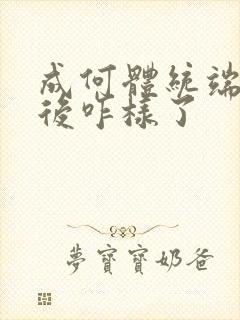 成何體統端
後咋樣了
夢寶寶奶爸